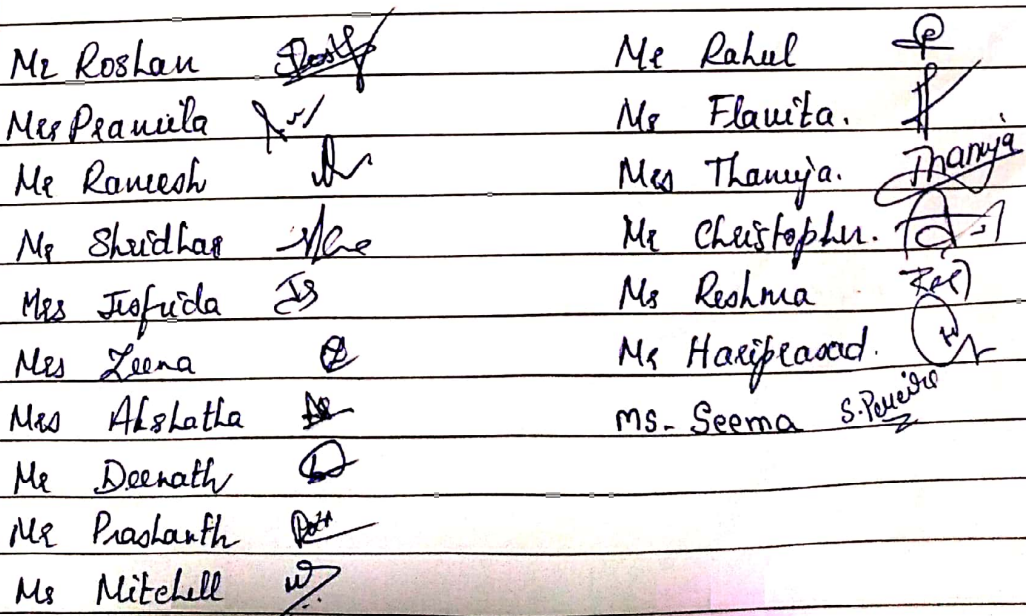 Mr Roshan
Mrs Pramila
Mr Ramesh
Mr Shridhar
Mrs Jisfrida
Mrs Leena
Mrs Akshatha
Mr Deenath
Mr Prashanth
Ms Mitchell
Mr Rahul
Ms Flavita.
Mrs Thanuja. Thanuja
Mr Christopher.
Ms Reshma
Mr Hariprasad.
MS- Seema S.Pereira